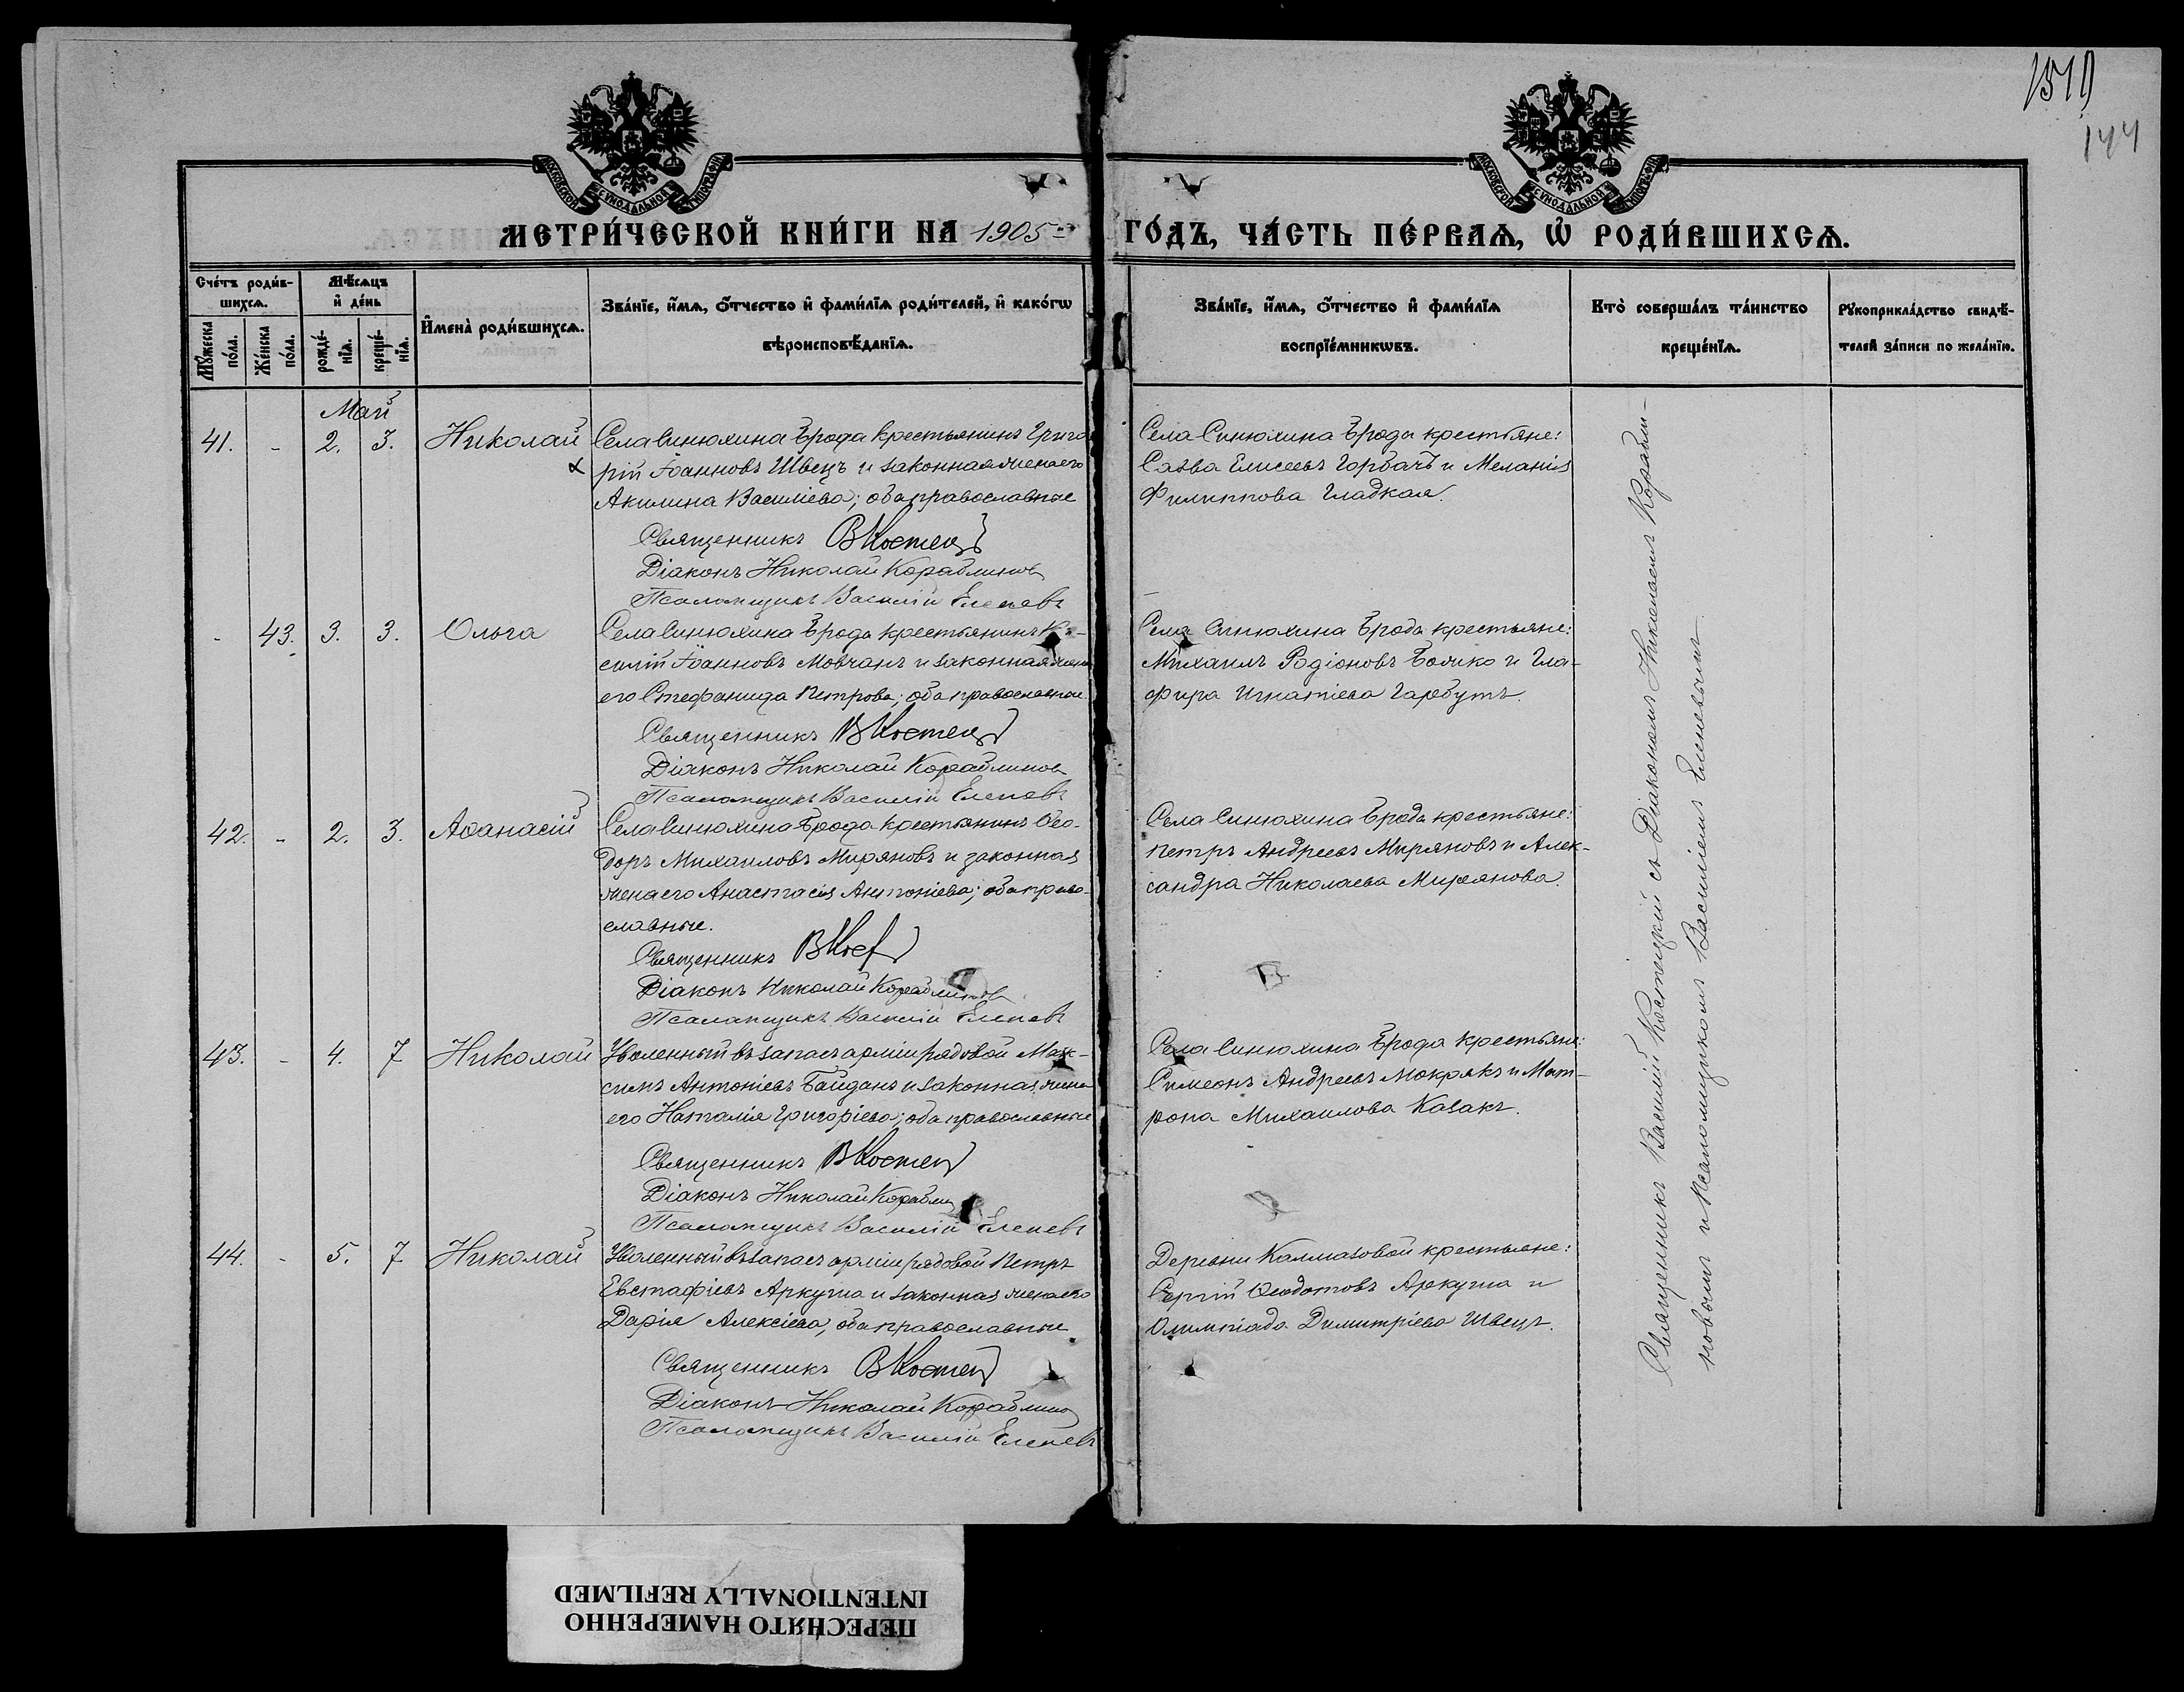 1519
144
МОСКОВСКОЙ СѴНОДАЛЬНОЙ ТИПОГРАФІИ
МОСКОВСКОЙ СѴНОДАЛЬНОЙ ТИПОГРАФІИ
МЕТРИ́ЧЕСКОЙ КНИ́ГИ НА 1905 ГО́ДЪ, ЧА́СТЬ ПЕ́РВАѦ, Ѡ РОДИ́ВШИХСѦ.
Сче́тъ роди́в-
шихсѧ.
Мѣ́сѧцъ
и҆ де́нь
Мꙋ́жеска
по́ла.
Же́нска
по́ла.
рожде́-
нїѧ.
креще́-
нїѧ.
И҆мена̀ роди́вшихсѧ.
Зва́нїе, и҆́мѧ, ѻ҆́тчество и҆ фами́лїѧ роди́телей, и҆ како́гѡ
вѣроисповѣ́данїѧ.
Зва́нїе, и҆́мѧ, ѻ҆́тчество и҆ фами́лїѧ
воспрїе́мникѡвъ.
Кто̀ соверша́лъ та́инство
креще́нїѧ.
Рꙋкоприкла́дство свидѣ́-
телей за́писи по жела́нїю.
Май
41. - 2. 3. Николай
Села Синюхина Брода крестьянинъ Григо
рій Іоанновъ Швецъ и законная жена его
Акилина Василіева; оба православные
Священникъ В Костец
Діаконъ Николай Кораблинов
Псаломщикъ Василій Еленевъ
Села Синюхина Брода крестьяне:
Савва Елисеевъ Горбачъ и Меланія
Филиппова Гладкая.
- 43. 3. 3. Ольга
Села Синюхина Брода крестьянинъ Ва-
силій Іоанновъ Мовчанъ и законная жена
его Стефанида Петрова; оба православные
Священникъ В Костец
Діаконъ Николай Кораблинов
Псаломщикъ Василій Еленевъ
Села Синюхина Брода крестьяне:
Михаилъ Родіоновъ Бойко и Гла-
фира Игнатіева Гарбузъ.
42. - 2. 3. Аѳанасій
Села Синюхина Брода крестьянинъ Ѳео-
доръ Михаиловъ Миряновъ и законная
жена его Анастасія Антоніева; оба право-
славные.
Священникъ В Кост
Діаконъ Николай Кораблинов
Псаломщикъ Василій Еленевъ
Села Синюхина Брода крестьяне:
Петръ Андреевъ Миряновъ и Алек-
сандра Николаева Мирянова.
43. - 4. 7 Николай
Уволенный въ запасъ арміи рядовой Мак-
симъ Антоніевъ Байданъ и законная жена
его Наталія Григоріева; оба православные
Священникъ В Костец
Діаконъ Николай Кораблин
Псаломщикъ Василій Еленевъ
Села Синюхина Брода крестьяне:
Симеонъ Андреевъ Мокрякъ и Мат-
рона Михаилова Казакъ.
44. - 5. 7 Николай
Уволенный въ запасъ арміи рядовой Петръ
Евстафіевъ Аркуша и законная жена его
Дарія Алексіева, оба православные
Священникъ В Костец
Діаконъ Николай Кораблино
Псаломщикъ Василій Еленевъ
Деревни Калмазовой крестьяне:
Сергій Ѳеодотовъ Аркуша и
Олимпіада Димитріева Швецъ.
Священникъ Василій Костецкій съ Діакономъ Николаемъ Корабли-
новымъ и Псаломщикомъ Василіемъ Еленевымъ
ПЕРЕСНЯТО НАМЕРЕННО
INTENTIONALLY REFILMED